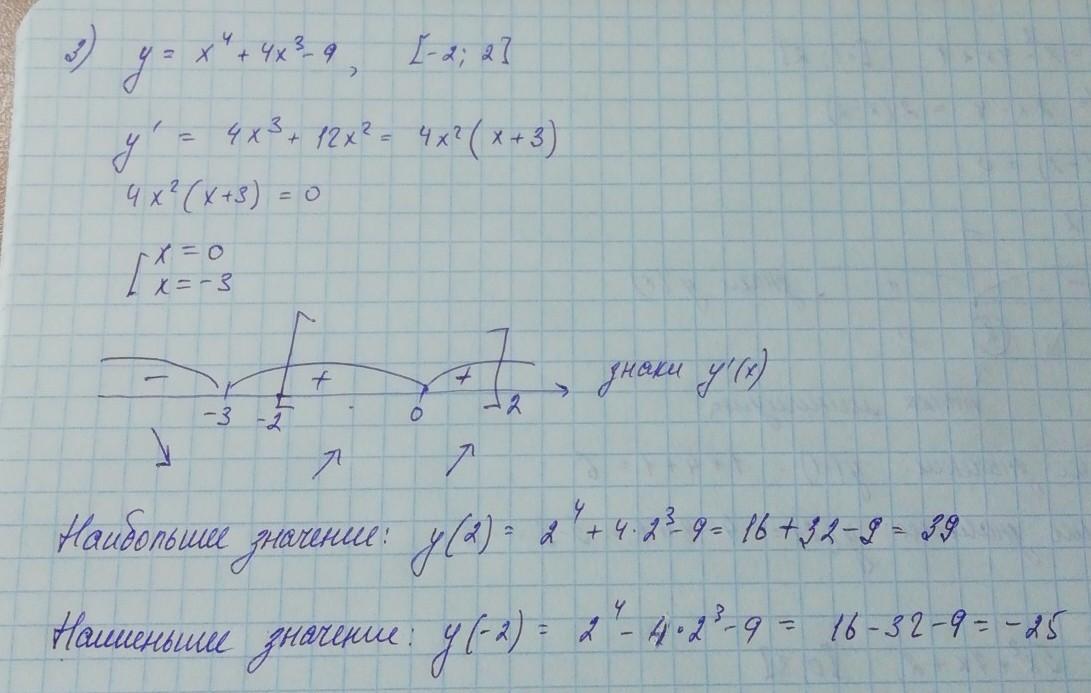 3) y = x⁴ + 4x³ - 9, [-2; 2]
y' = 4x³ + 12x² = 4x²(x+3)
4x²(x+3) = 0
[ x = 0
x = -3
- + + знаки y'(x)
-3 -2 0 2
↘ ↗ ↗
Наибольшее значение: y(2) = 2⁴ + 4·2³ - 9 = 16 + 32 - 9 = 39
Наименьшее значение: y(-2) = 2⁴ - 4·2³ - 9 = 16 - 32 - 9 = -25